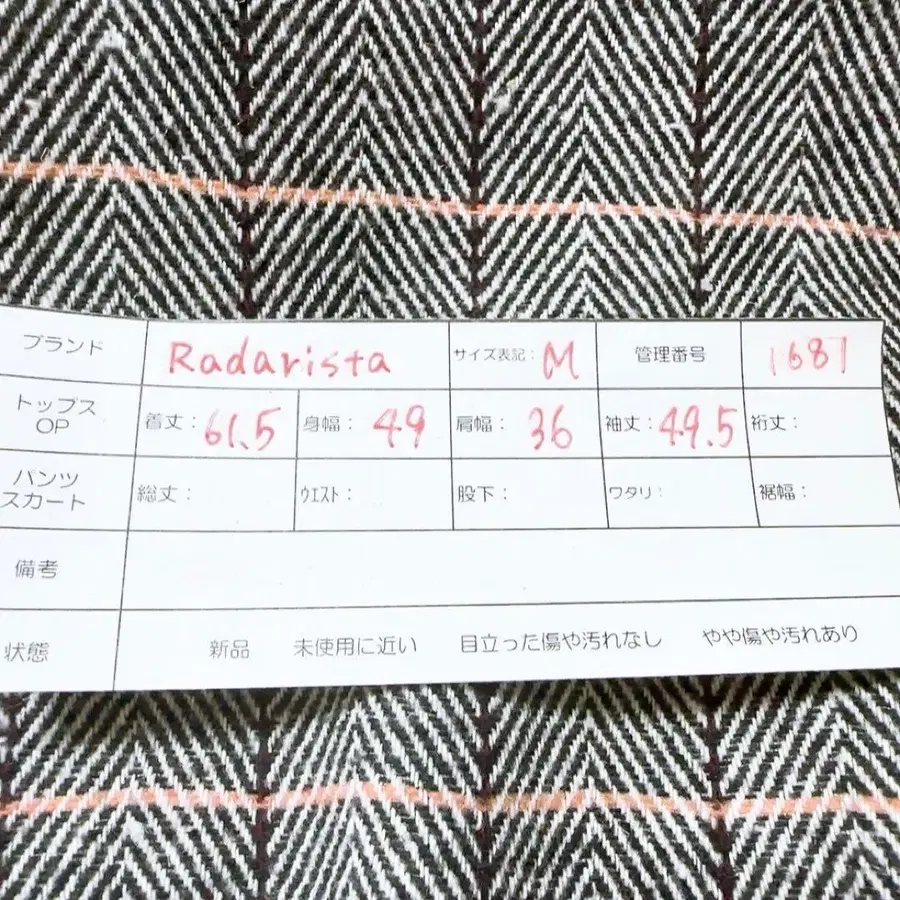 ブランド Radarista サイズ表記: M 管理番号 1687
トップス
OP
着丈: 61.5 身幅: 49 肩幅: 36 袖丈: 49.5 裄丈:
パンツ
スカート
総丈: ウエスト: 股下: ワタリ: 裾幅:
備考
状態 新品 未使用に近い 目立った傷や汚れなし やや傷や汚れあり